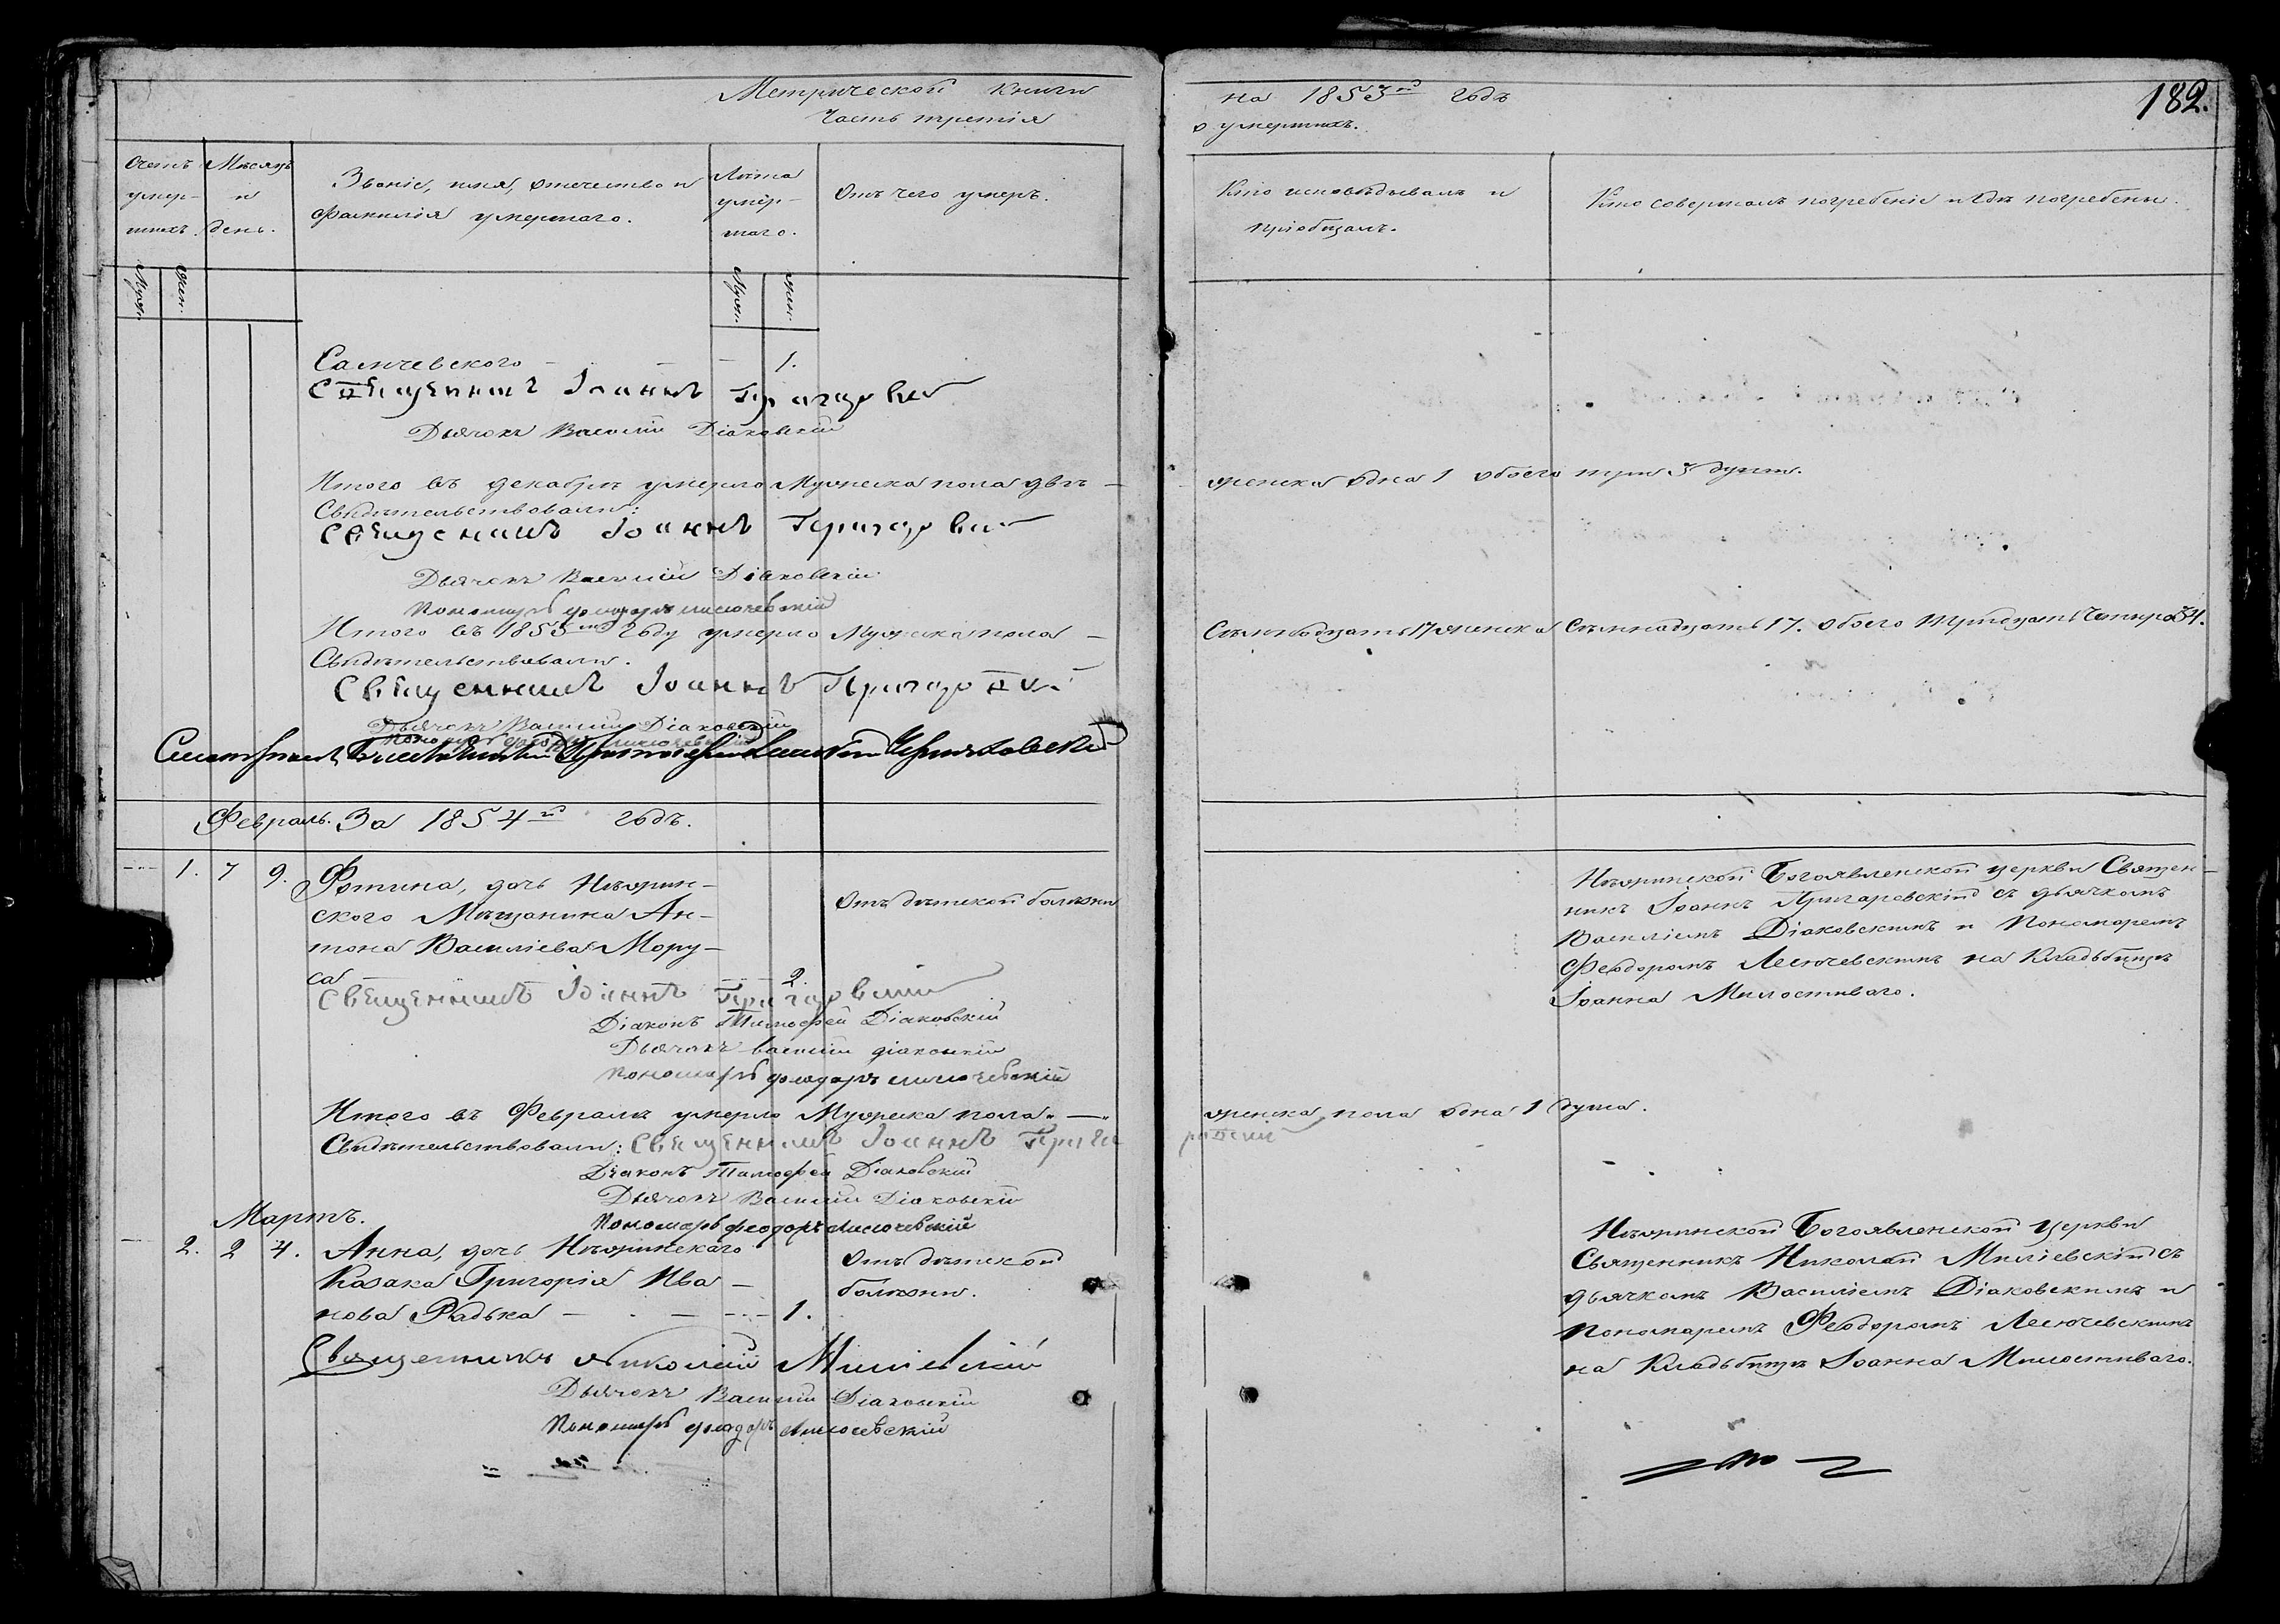 Метрической книги
Часть третія
на 1853й годъ
о умершихъ.
182.
Счетъ умер-шихъ.
Мѣсяцъ и день.
Званіе, имя, отчество и
фамилія умершаго.
Лѣта умер-шаго.
Отъ чего умеръ.
Кто исповѣдывалъ и
пріобщалъ.
Кто совершалъ погребеніе и гдѣ погребены.
Муж. Жен.
Муж. Жен.
1.
Священникъ Іоаннъ
Дьячокъ Василій Діаковскій
Итого въ декабрѣ умерло Мужеска пола двѣ — женска одна 1 обоего три 3 души.
Свидѣтельствовали:
Священникъ Іоаннъ
Дьячокъ Василій Діаковскій
Пономарь
Итого въ 1853мъ году умерло Мужеска пола — Семнадцать 17 женска Семнадцать 17. обоего тридцать четыре 34.
Свидѣтельствовали.
Священникъ Іоаннъ
Дьячокъ Василій Діаковскій
Февраль. За 1854й годъ.
1. 7 9. Фотина, дочь Нѣжин-
ского Мѣщанина Ан-
тона Василіева Мору-
са 2.
Отъ дѣтской болѣзни
Нѣжинской Богоявленской церкви Священ-
никъ Іоаннъ Пригаровскій съ дьячкомъ
Василіемъ Діаковскимъ и Пономаремъ
Феодоромъ на Кладбищѣ
Іоанна Милостиваго.
Священникъ Іоаннъ
Діаконъ Тимофей Діаковскій
Дьячокъ Василій Діаковскій
Пономарь
Итого въ Февралѣ умерло Мужеска пола „ — „ женска пола одна 1 душа.
Свидѣтельствовали: Священникъ Іоаннъ
Діаконъ Тимофей Діаковскій
Дьячокъ Василій Діаковскій
Пономарь Феодоръ
Мартъ.
2. 2 4. Анна, дочь Нѣжинскаго
Казака Григорія Ива-
нова Радька 1.
Отъ дѣтской
болѣзни.
Нѣжинской Богоявленской Церкви
Священникъ Николай Миліевскій съ
дьячкомъ Василіемъ Діаковскимъ и
Пономаремъ Феодоромъ
на Кладбищѣ Іоанна Милостиваго.
Священникъ Николай Миліевскій
Дьячокъ Василій Діаковскій
Пономарь